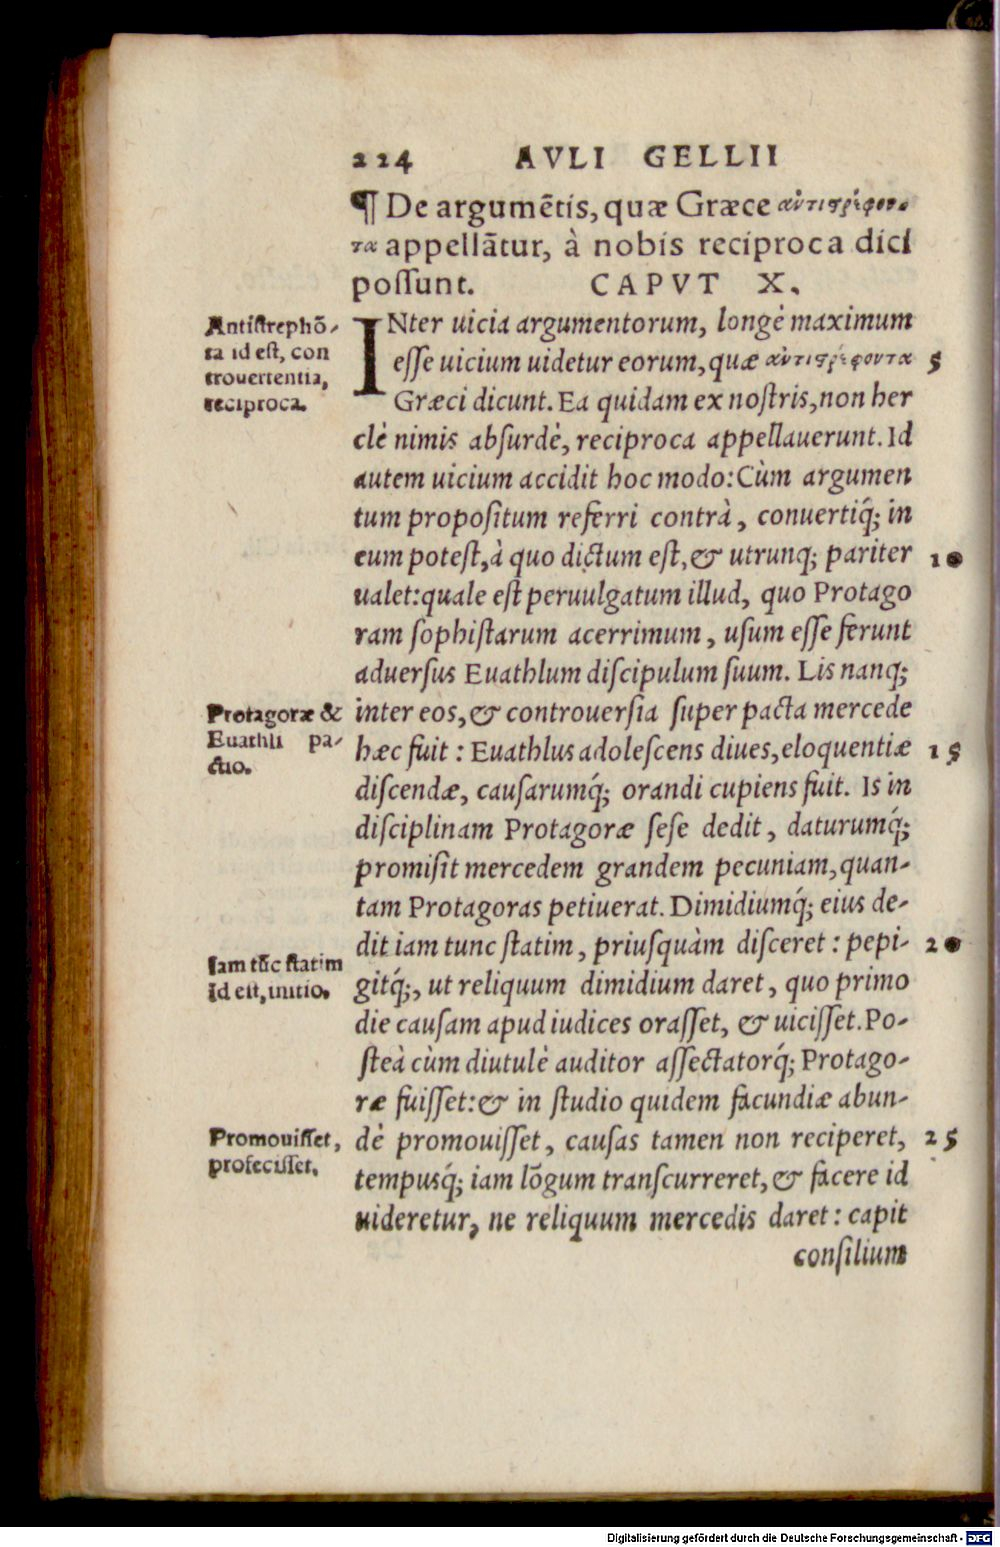 224 AVLI GELLII
¶ De argumẽtis, quæ Græce ἀντιστρέφον-
τα appellãtur, à nobis reciproca dici
possunt. CAPVT X.
INter uicia argumentorum, longè maximum
esse uicium uidetur eorum, quæ ἀντιστρέφοντα 5
Græci dicunt. Ea quidam ex nostris, non her
clè nimis absurdè, reciproca appellauerunt. Id
autem uicium accidit hoc modo: Cùm argumen
tum propositum referri contrà, conuertiq́; in
eum potest, à quo dictum est, & utrunq; pariter 10
ualet: quale est peruulgatum illud, quo Protago
ram sophistarum acerrimum, usum esse ferunt
aduersus Euathlum discipulum suum. Lis nanq;
inter eos, & controuersia super pacta mercede
hæc fuit: Euathlus adolescens diues, eloquentiæ 15
discendæ, causarumq́; orandi cupiens fuit. Is in
disciplinam Protagoræ sese dedit, daturumq́;
promisit mercedem grandem pecuniam, quan-
tam Protagoras petiuerat. Dimidiumq́; eius de-
dit iam tunc statim, priusquàm disceret: pepi- 20
gitq́;, ut reliquum dimidium daret, quo primo
die causam apud iudices orasset, & uicisset. Po-
steà cùm diutulè auditor assectatorq́; Protago-
ræ fuisset: & in studio quidem facundiæ abun-
dè promouisset, causas tamen non reciperet, 25
tempusq́; iam lõgum transcurreret, & facere id
uideretur, ne reliquum mercedis daret: capit
consilium
Antistrephõ-
ta id est, con
trouertentia,
reciproca.
Protagoræ &
Euathli pa-
ctio.
Iam tũc statim
Id est, initio.
Promouisset,
profecisset.
Digitalisierung gefördert durch die Deutsche Forschungsgemeinschaft - DFG